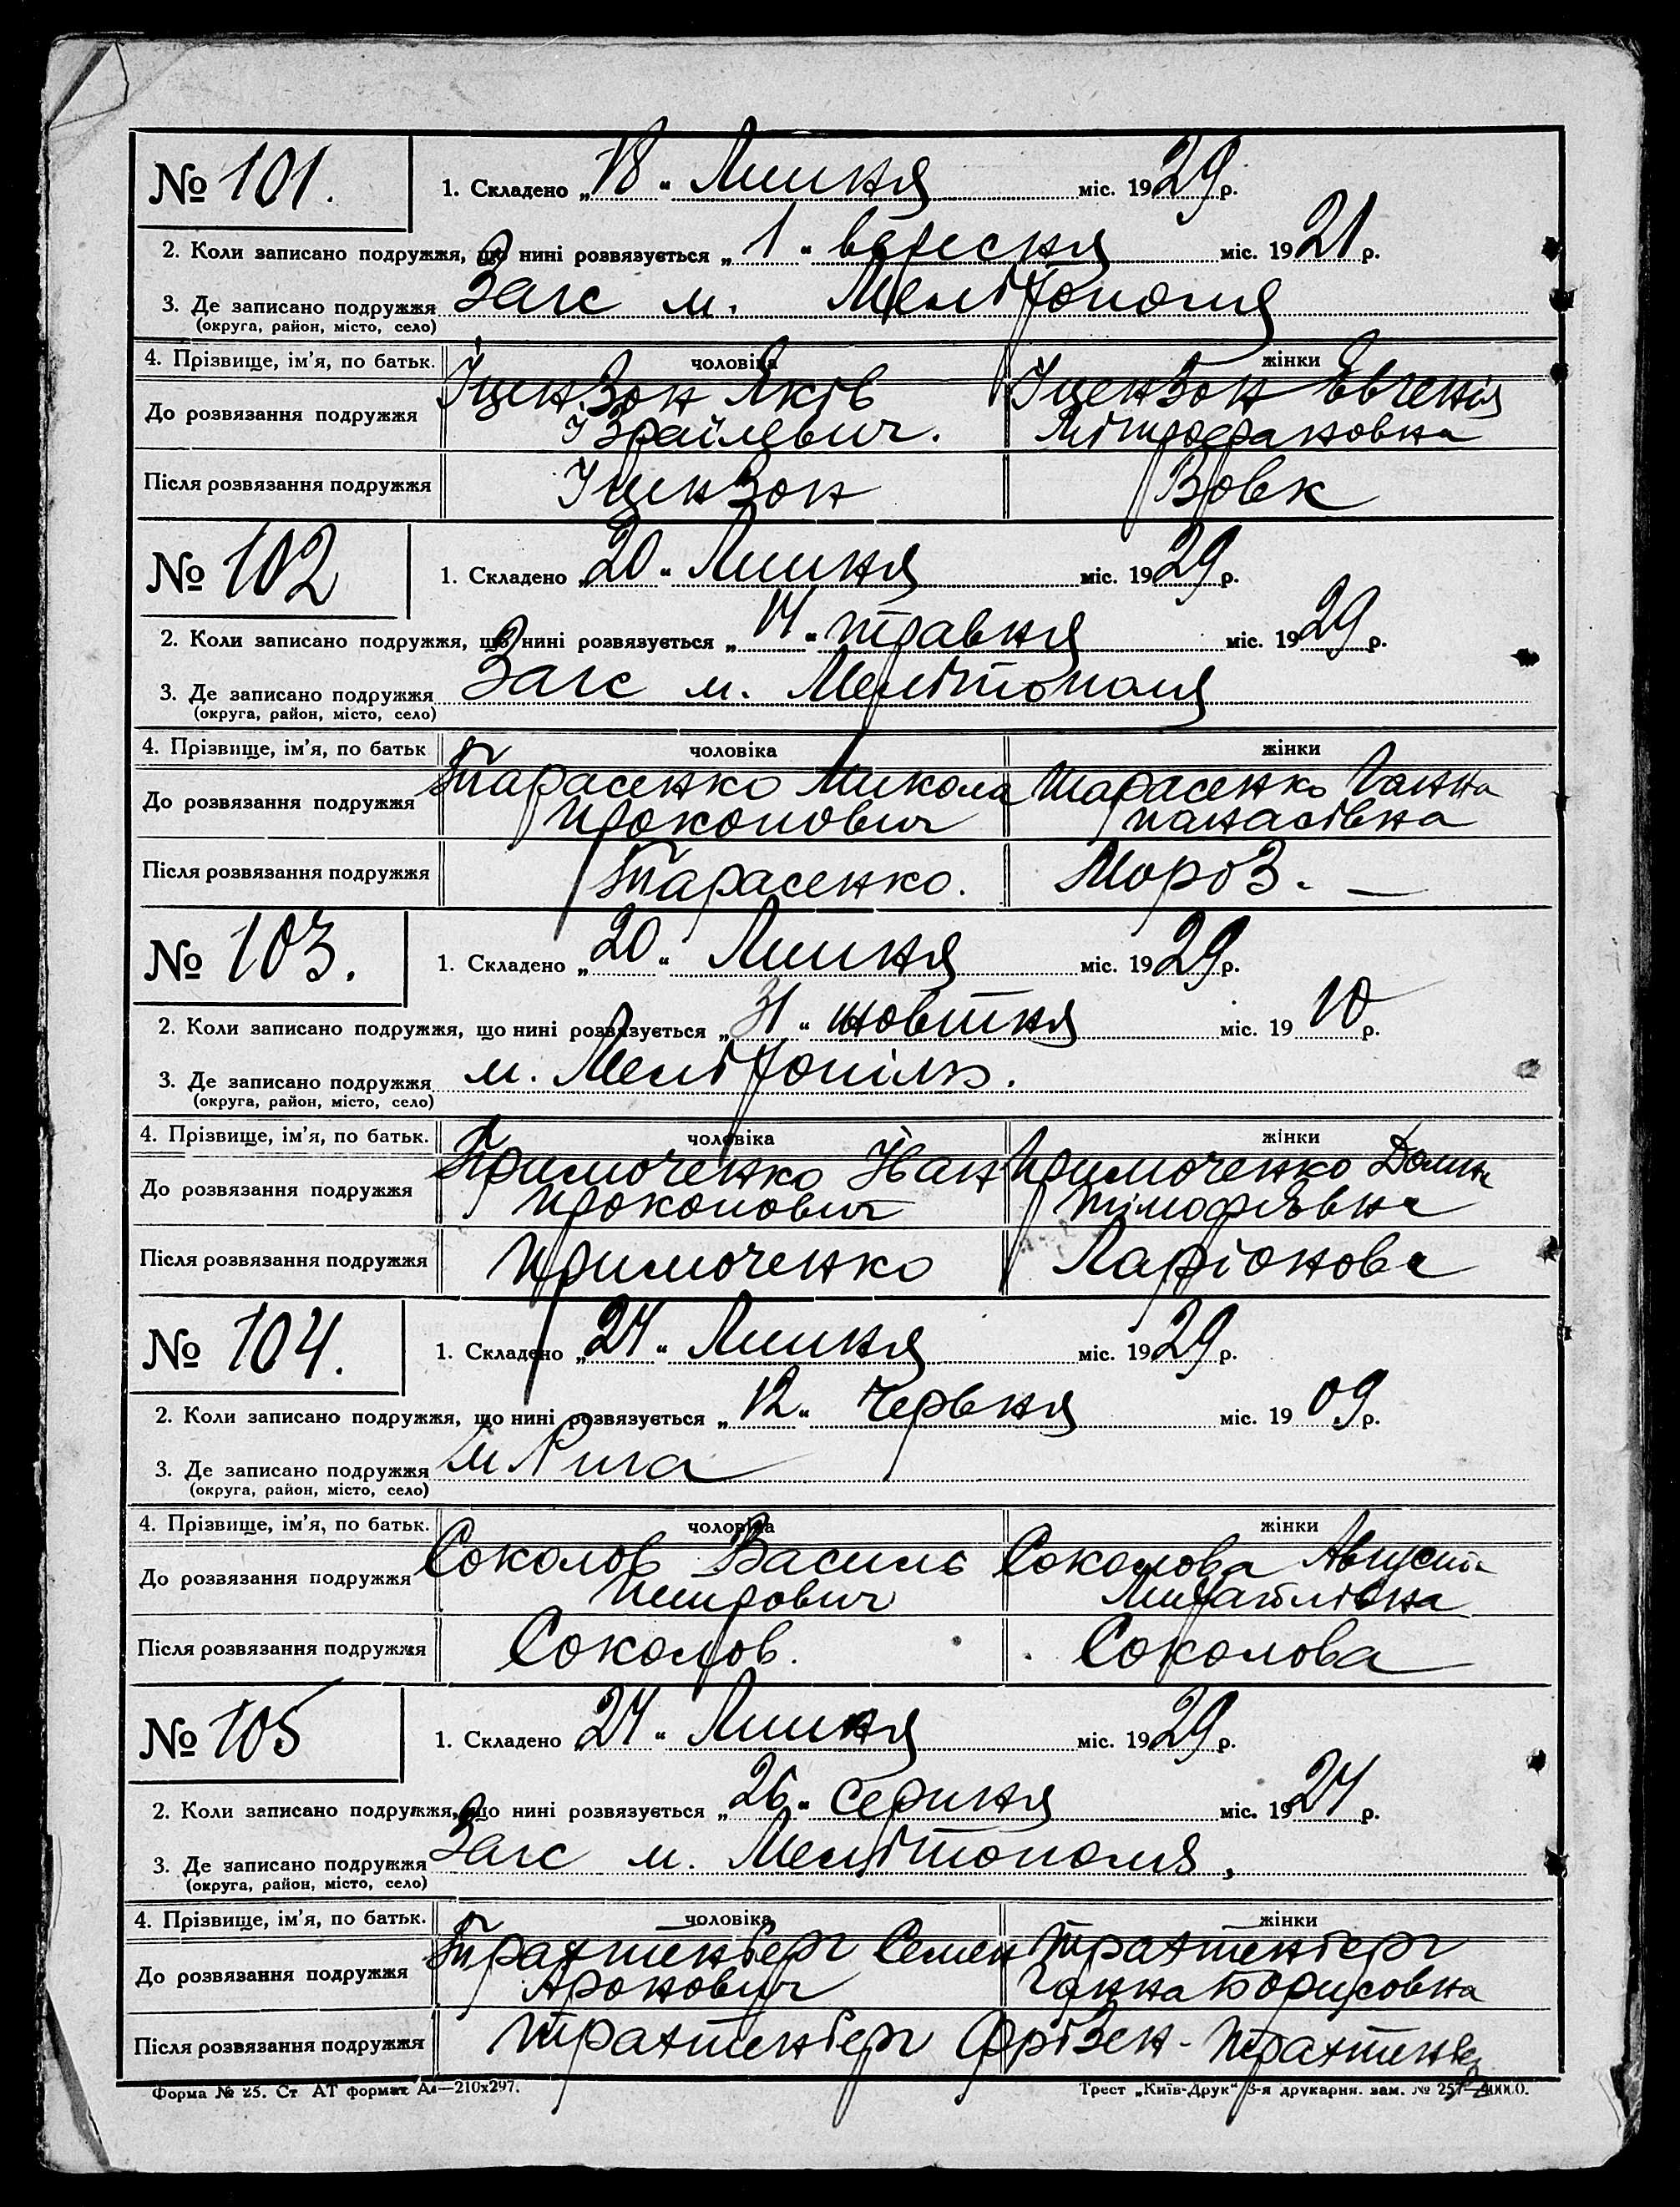 № 101. 1. Складено „18“ Липня міс. 1929 р.
2. Коли записано подружжя, що нині розвязується „1“ вересня міс. 1921 р.
3. Де записано подружжя Загс м. Мелітополя
(округа, район, місто, село)
4. Прізвище, ім’я, по батьк. чоловіка жінки
До розвязання подружжя Іцензон Яків Іцензон Евгенія
Ізраілевич. Мітрофановна
Після розвязання подружжя Іцензон Вовк
№ 102 1. Складено „20“ Липня міс. 1929 р.
2. Коли записано подружжя, що нині розвязується „14“ травня міс. 1929 р.
3. Де записано подружжя Загс м. Мелітополя
(округа, район, місто, село)
4. Прізвище, ім’я, по батьк чоловіка жінки
До розвязання подружжя Тарасенко Микола Тарасенко Ганна
Прокопович Панасівна
Після розвязання подружжя Тарасенко. Мороз. —
№ 103. 1. Складено „20“ Липня міс. 1929 р.
2. Коли записано подружжя, що нині розвязується „31“ жовтня міс. 1910 р.
3. Де записано подружжя м. Мелітопіль.
(округа, район, місто, село)
4. Прізвище, ім’я, по батьк. чоловіка жінки
До розвязання подружжя Примоченко Іван Примоченко
Прокопович Тімофієвна
Після розвязання подружжя Примоченко Ларіонова
№ 104. 1. Складено „24“ Липня міс. 1929 р.
2. Коли записано подружжя, що нині розвязується „12“ Червня міс. 1909 р.
3. Де записано подружжя м Рига
(округа, район, місто, село)
4. Прізвище, ім’я, по батьк. чоловіка жінки
До розвязання подружжя Соколов Василь Соколова Августа
Петрович Михайлівна
Після розвязання подружжя Соколов. Соколова
№ 105 1. Складено „24“ Липня міс. 1929 р.
2. Коли записано подружжя, що нині розвязується „26“ серпня міс. 1924 р.
3. Де записано подружжя Загс м. Мелітополя,
(округа, район, місто, село)
4. Прізвище, ім’я, по батьк. чоловіка жінки
До розвязання подружжя Трахтенберг Семен Трахтенберг
Аронович Ганна Борисовна
Після розвязання подружжя Трахтенберг Фрізен-Трахтенберг
Форма № 25. Ст АТ формат А4—210х297. Трест „Київ-Друк“ 3-я друкарня. зам. №